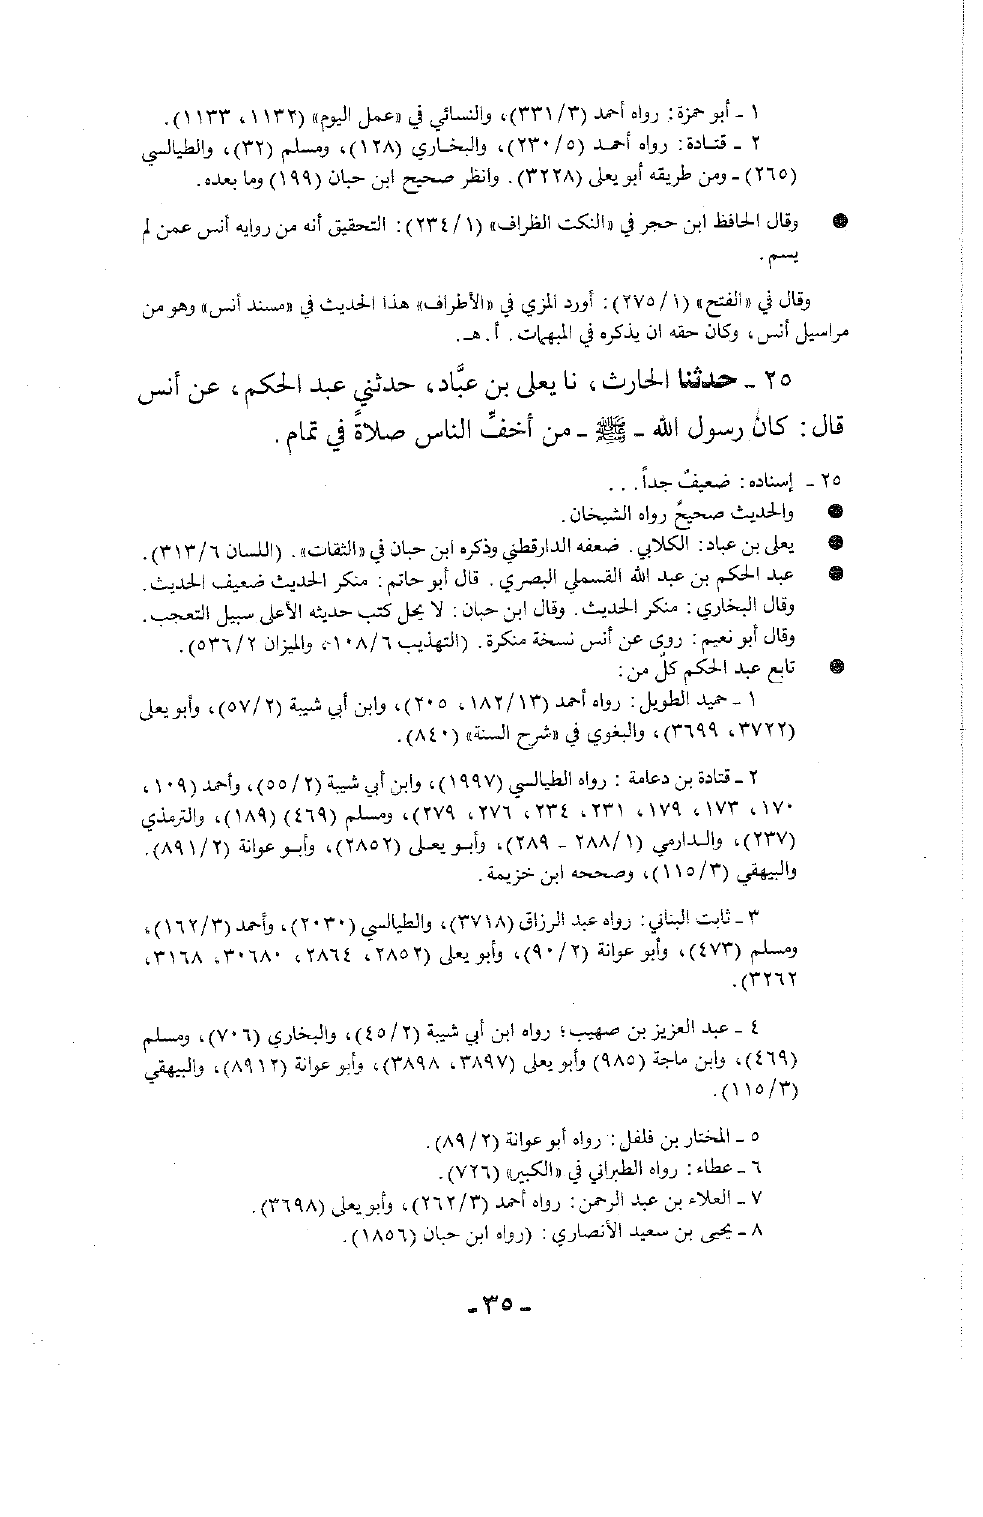 ١ ـ أبو حمزة: رواه أحمد (٣٣١/٣)، والنسائي في «عمل اليوم» (١١٣٢، ١١٣٣).
٢ ـ قتادة: رواه أحمد (٢٣٠/٥)، والبخاري (١٢٨)، ومسلم (٣٢)، والطيالسي
(٢٦٥) ـ ومن طريقه أبو يعلى (٣٢٢٨). وانظر صحيح ابن حبان (١٩٩) وما بعده.
● وقال الحافظ ابن حجر في «النكت الظراف» (٢٣٤/١): التحقيق أنه من روايه أنس عمن لم
يسم.
وقال في «الفتح» (٢٧٥/١): أورد المزي في «الأطراف» هذا الحديث في «مسند أنس» وهو من
مراسيل أنس، وكان حقه ان يذكره في المبهمات. أ. هـ.
٢٥ ـ حدثنا الحارث، نا يعلى بن عبَّاد، حدثني عبد الحكم، عن أنس
قال: كان رسول الله ـ ﷺ ـ من أخفِّ الناس صلاةً في تمام.
٢٥ ـ إسناده: ضعيفٌ جداً...
● والحديث صحيحٌ رواه الشيخان.
● يعلى بن عباد: الكلابي. ضعفه الدارقطني وذكره ابن حبان في «الثقات». (اللسان ٣١٣/٦).
● عبد الحكم بن عبد الله القسملي البصري. قال أبو حاتم: منكر الحديث ضعيف الحديث.
وقال البخاري: منكر الحديث. وقال ابن حبان: لا يحل كتب حديثه الأعلى سبيل التعجب.
وقال أبو نعيم: روى عن أنس نسخة منكرة. (التهذيب ١٠٨/٦، والميزان ٥٣٦/٢).
● تابع عبد الحكم كلّ من:
١ ـ حميد الطويل: رواه أحمد (١٨٢/١٣، ٢٠٥)، وابن أبي شيبة (٥٧/٢)، وأبو يعلى
(٣٧٢٢، ٣٦٩٩)، والبغوي في «شرح السنة» (٨٤٠).
٢ ـ قتادة بن دعامة: رواه الطيالسي (١٩٩٧)، وابن أبي شيبة (٥٥/٢)، وأحمد (١٠٩،
١٧٠، ١٧٣، ١٧٩، ٢٣١، ٢٣٤، ٢٧٦، ٢٧٩)، ومسلم (٤٦٩) (١٨٩)، والترمذي
(٢٣٧)، والدارمي (٢٨٨/١ ـ ٢٨٩)، وأبو يعلى (٢٨٥٢)، وأبو عوانة (٨٩١/٢).
والبيهقي (١١٥/٣)، وصححه ابن خزيمة.
٣ ـ ثابت البناني: رواه عبد الرزاق (٣٧١٨)، والطيالسي (٢٠٣٠)، وأحمد (١٦٢/٣)،
ومسلم (٤٧٣)، وأبو عوانة (٩٠/٢)، وأبو يعلى (٢٨٥٢، ٢٨٦٤، ٣٠٦٨٠، ٣١٦٨،
٣٢٦٢).
٤ ـ عبد العزيز بن صهيب؛ رواه ابن أبي شيبة (٤٥/٢)، والبخاري (٧٠٦)، ومسلم
(٤٦٩)، وابن ماجة (٩٨٥) وأبو يعلى (٣٨٩٧، ٣٨٩٨)، وأبو عوانة (٨٩١٢)، والبيهقي
(١١٥/٣).
٥ ـ المختار بن فلفل: رواه أبو عوانة (٨٩/٢).
٦ ـ عطاء: رواه الطبراني في «الكبير» (٧٢٦).
٧ ـ العلاء بن عبد الرحمن: رواه أحمد (٢٦٢/٣)، وأبو يعلى (٣٦٩٨).
٨ ـ يحيى بن سعيد الأنصاري: (رواه ابن حبان (١٨٥٦).
ـ ٣٥ ـ